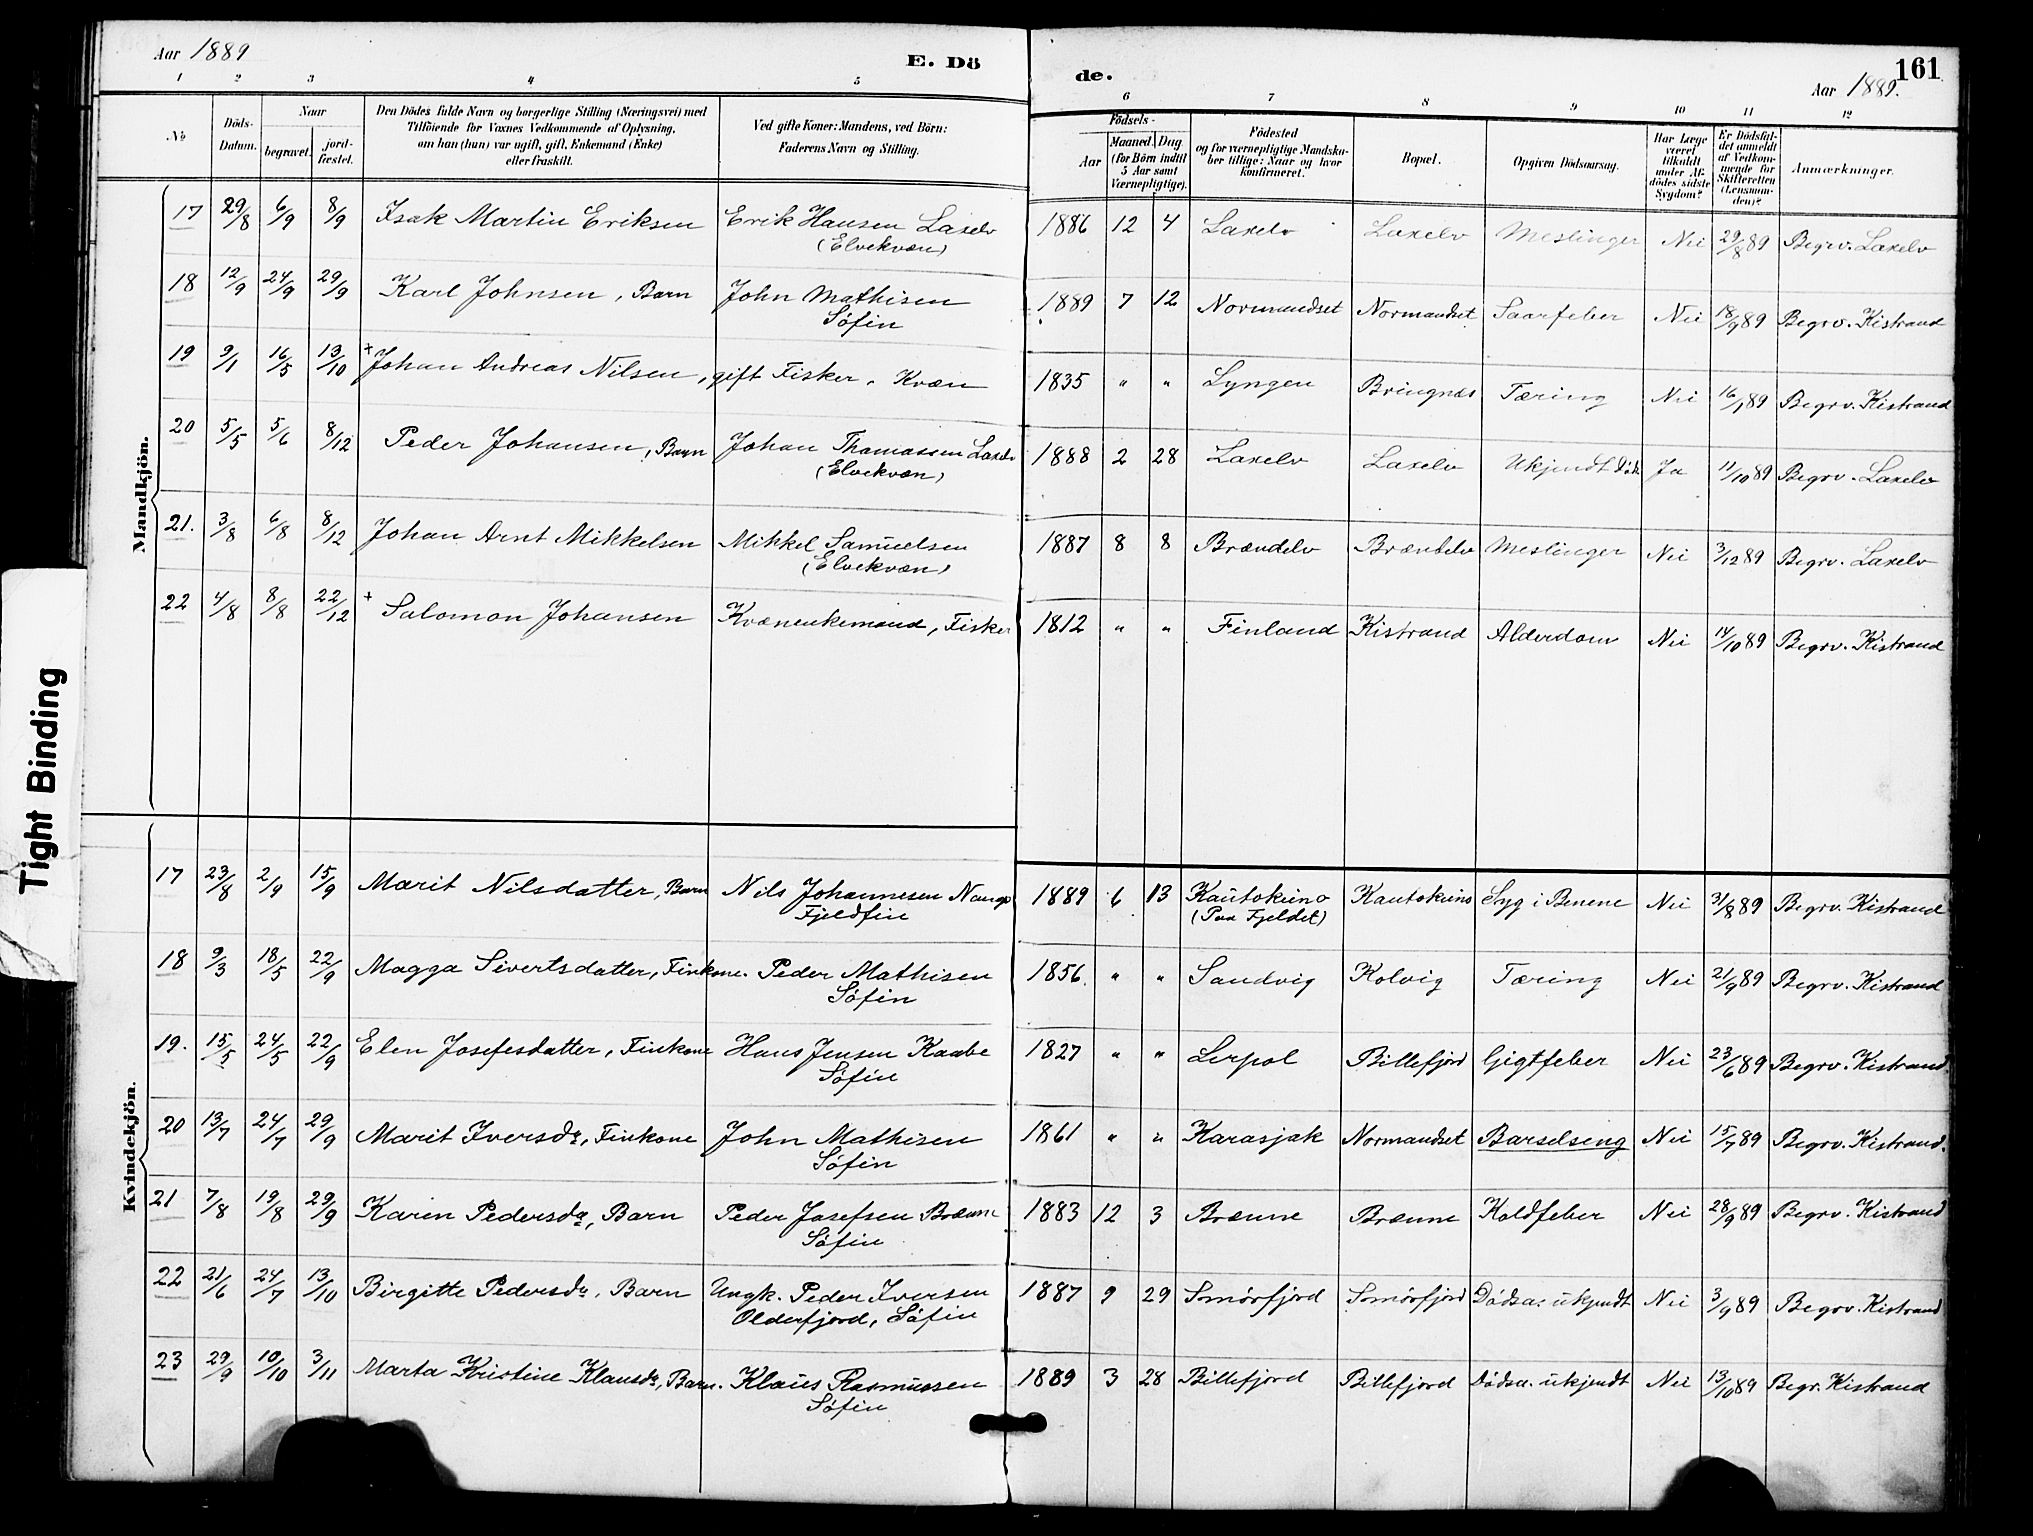 Aar 1889
E. Dö
de.
161
Aar 1889.
1 2 3 4 5 6 7 8 9 10 11 12
No
Döds-Datum.
Naar
begravet.
jord-fæstet.
Den Dödes fulde Navn og borgerlige Stilling (Næringsvei) med
Tilföiende for Voxnes Vedkommende af Oplysning,
om han (hun) var ugift, gift, Enkemand (Enke)
eller fraskilt.
Ved gifte Koner: Mandens, ved Börn:
Faderens Navn og Stilling.
Födsels-
Aar
Maaned. Dag
(for Börn indtil
5 Aar samt
Værnepligtige).
Födested
og for værnepligtige Mandskaber tillige: Naar og hvor
konfirmeret.
Bopæl.
Opgiven Dödsaarsag.
Har Læge
været
tilkaldt
under Afdödes sidste
Sygdom?
Er Dödsfaldet anmeldt
af Vedkommende for
Skifteretten
(Lensmanden)?
Anmærkninger.
Mandkjön.
17 29/8 6/9 8/9 Isak Martin Eriksen Erik Hansen Laxelv 1886 12 4 Laxelv Laxelv Meslinger Nei 29/8 89 Begrv. Laxelv
(Elvekvæn)
18 12/9 24/9 29/9 Karl Johnsen, Barn John Mathisen 1889 7 12 Normandset Normandset Saarfeber Nei 18/9 89 Begrv. Kistrand
Söfin
19 9/1 16/5 13/10 + Johan Andreas Nilsen, gift Fisker, Kvæn 1835 " " Lyngen Bringnæs Tæring Nei 16/1 89 Begrv. Kistrand
20 5/5 5/6 8/12 Peder Johansen, Barn Johan Thomassen Laxelv 1888 2 28 Laxelv Laxelv Ukjendt Ja 11/10 89 Begrv. Laxelv
(Elvekvæn)
21. 3/8 6/8 8/12 Johan Arnt Mikkelsen Mikkel Samuelsen 1887 8 8 Brændelv Brændelv Meslinger Nei 3/12 89 Begrv. Laxelv
(Elvekvæn)
22 4/8 8/8 22/12 + Salomon Johansen Kvænenkemand, Fisker 1812 " " Finland Kistrand Alderdom Nei 14/10 89 Begrv. Kistrand
Kvindekjön.
17 23/8 2/9 15/9 Marit Nilsdatter, Barn Nils Johannesen Nango 1889 6 13 Kautokeino Kautokeino Syg i Benene Nei 31/8 89 Begrv. Kistrand
Fjeldfin (Paa Fjeldet)
18 9/3 18/5 22/9 Magga Sivertsdatter, Finkone. Peder Mathisen 1856. " " Sandvig Kolvig Tæring Nei 21/9 89 Begrv. Kistrand
Söfin
19. 15/5 24/5 22/9 Elen Josefesdatter, Finkone Hans Jensen Kaabe 1827 " " Lerpol Billefjord Gigtfeber Nei 23/6 89 Begrv. Kistrand.
Söfin
20 13/7 24/7 29/9 Marit Iversda, Finkone John Mathisen 1861 " " Karasjok Normandset Barselseng Nei 15/7 89 Begrv. Kistrand.
Söfin
21 7/8 19/8 29/9 Karen Pedersda, Barn Peder Josefsen Brænne 1883 12 3 Brænne Brænne Koldfeber Nei 28/9 89 Begrv. Kistrand
Söfin
22 21/6 24/7 13/10 Birgitte Pedersda, Barn Ungk. Peder Iversen 1887 9 29 Smörfjord Smörfjord Dödsa. ukjendt Nei 3/9 89 Begrv. Kistrand
Olderfjord, Söfin
23 29/9 10/10 3/11 Marta Kristine Klausda, Barn. Klaus Rasmussen 1889 3 28 Billefjord Billefjord Dödsa. ukjendt Nei 13/10 89 Begr. Kistrand
Söfin
Tight Binding